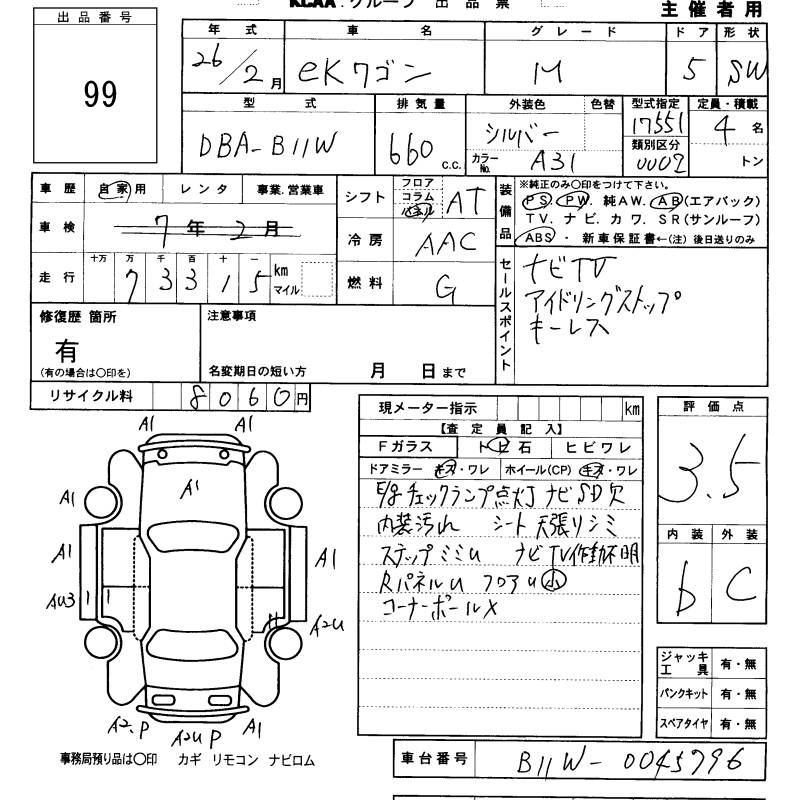 KCAA.グループ 出品票
主催者用
出品番号
99
年式 車名 グレード ドア 形状
26/2月 eKワゴン M 5 SW
型式 排気量 外装色 色替 型式指定 定員・積載
DBA-B11W 660 c.c. シルバー 17551 4名
類別区分
カラーNo. A31 0002 トン
車歴 自家用 レンタ 事業.営業車
車検 7年2月
走行 十万 万 千 百 十 一 km マイル
7 3 3 1 5
シフト フロア コラム パネル AT
冷房 AAC
燃料 G
装備品
※純正のみ○印をつけて下さい。
PS. PW. 純AW. AB(エアバック)
TV. ナビ. カワ. SR(サンルーフ)
ABS ・ 新車保証書←(注)後日送りのみ
セールスポイント
ナビTV
アイドリングストップ
キーレス
修復歴 箇所
有
(有の場合は○印を)
注意事項
名変期日の短い方 月 日まで
リサイクル料 8060円
現メーター指示 km
【査定員記入】
Fガラス トビ石 ヒビワレ
ドアミラー キズ・ワレ ホイール(CP) キズ・ワレ
E/g チェックランプ点灯 ナビSD欠
内装汚れ シート 天張りシミ
ステップミミU ナビTV作動不明
RパネルU フロアU小
コーナーポールX
評価点
3.5
内装 外装
b C
A1 A1
A1
A1
A1 A1
AU3 A2U
A2.P A2U P A1
事務局預り品は○印 カギ リモコン ナビロム
ジャッキ工具 有・無
パンクキット 有・無
スペアタイヤ 有・無
車台番号 B11W-0045796